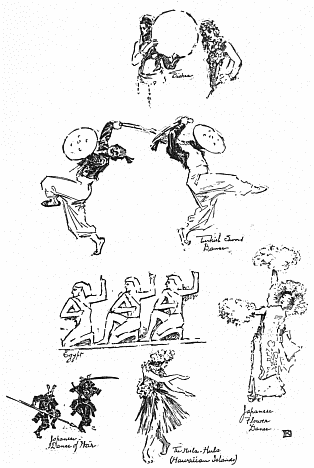 Turkish Sword
Dance
Egypt
Japanese
Flower
Dance
Japanese
Dance of War
The Hula-Hula
(Hawaiian Islands)